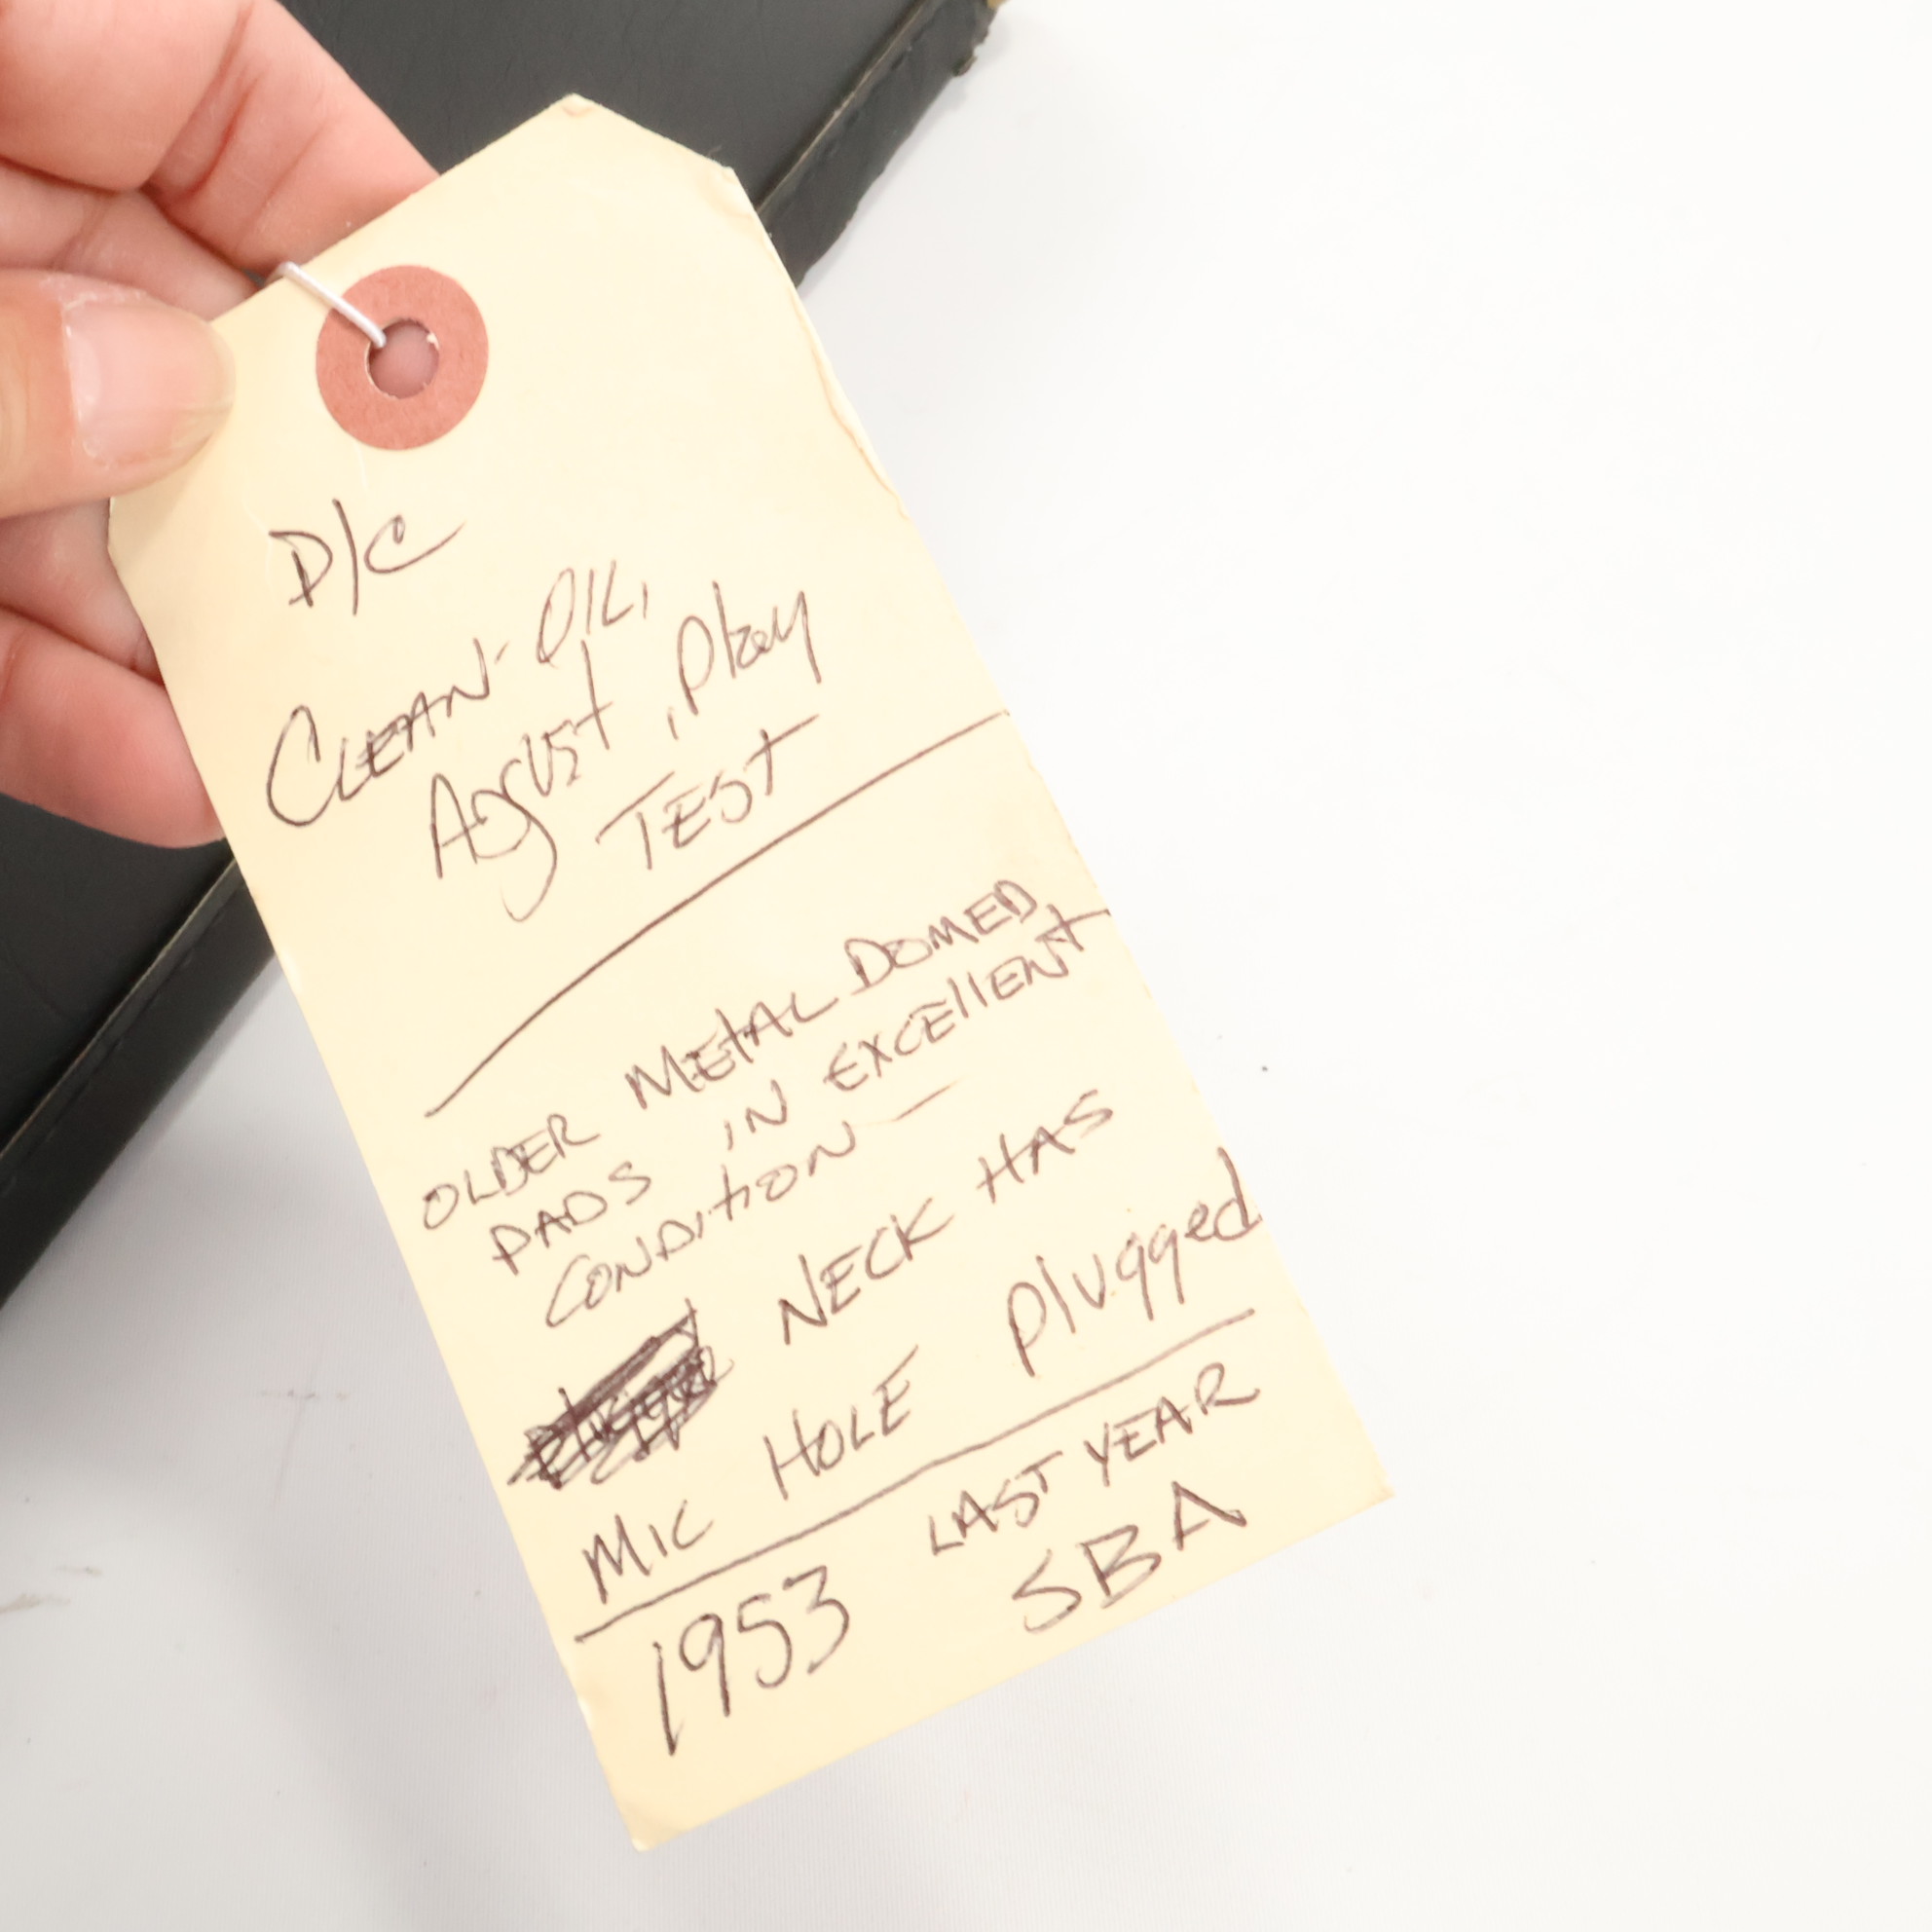 D/C
CLEAN- OIL,
AgSUSt, Play
TEST
OLDER METAL DOMED
PADS IN EXCEllENT
CONDItION —
NECK HAS
MIC HOLE Plugged
1953 LAST YEAR
SBA